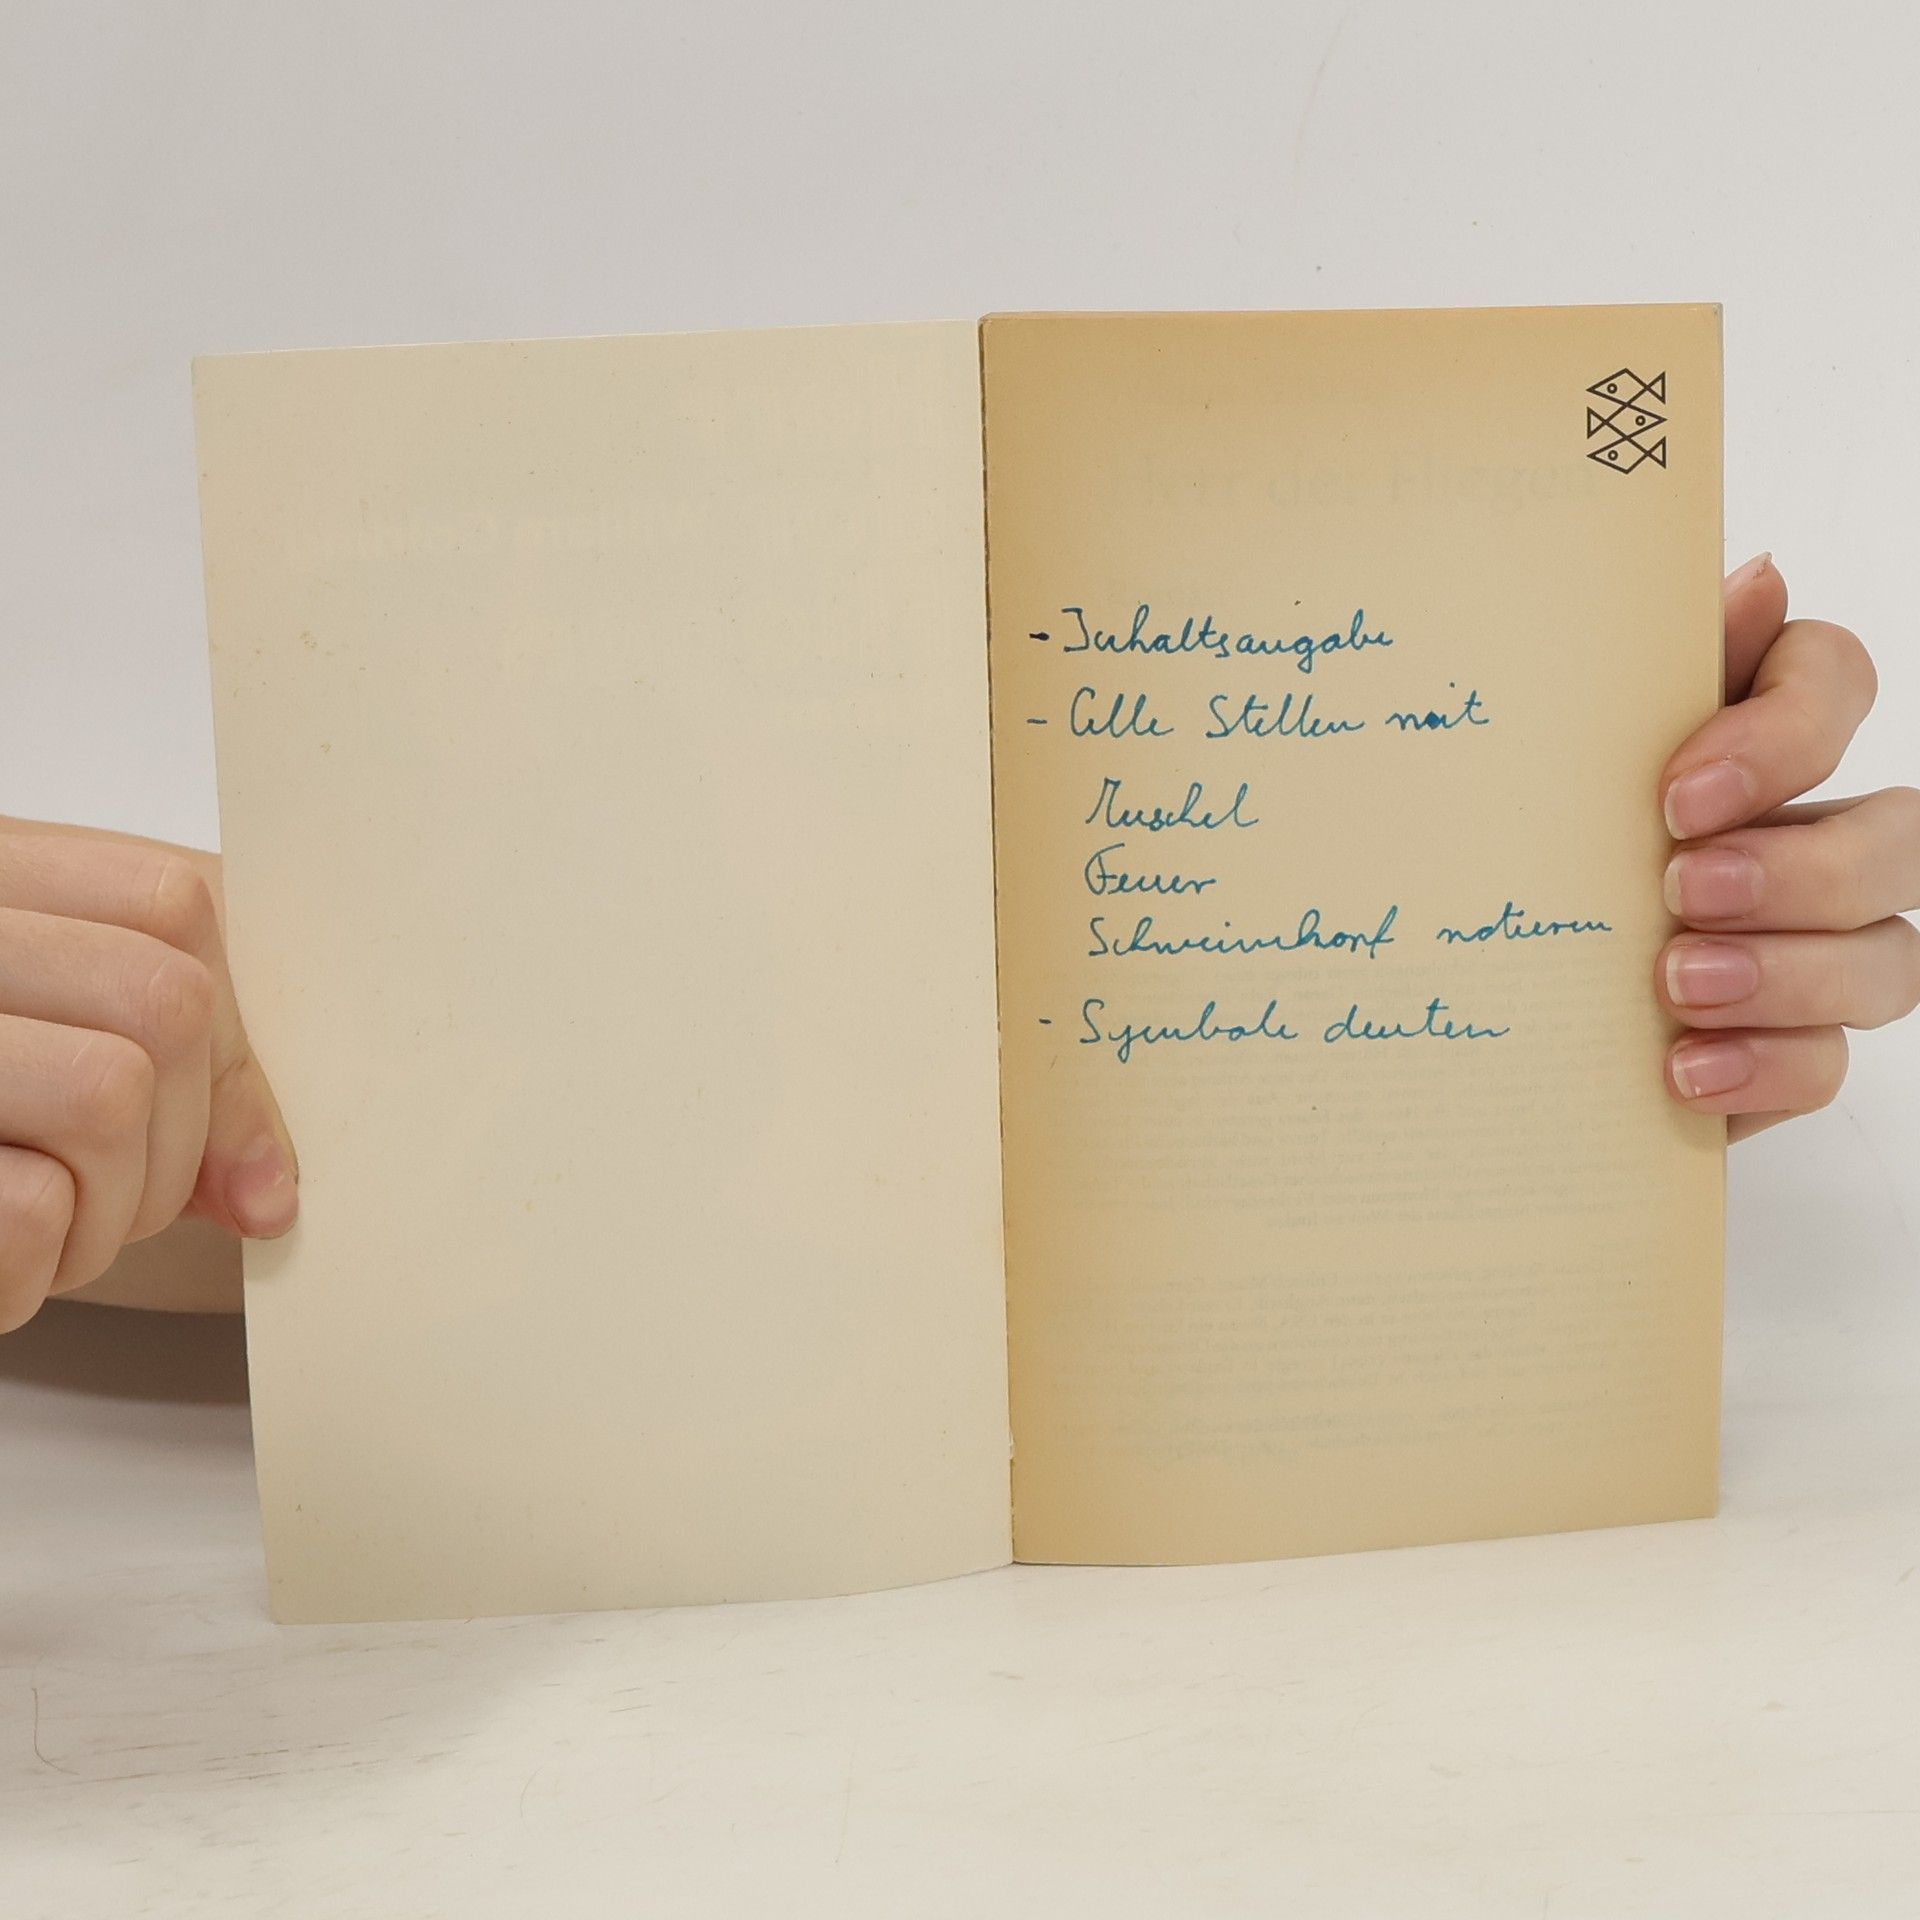 - Inhaltsangabe
- Alle Stellen mit
Muschel
Feuer
Schweinskopf notieren
- Symbole deuten